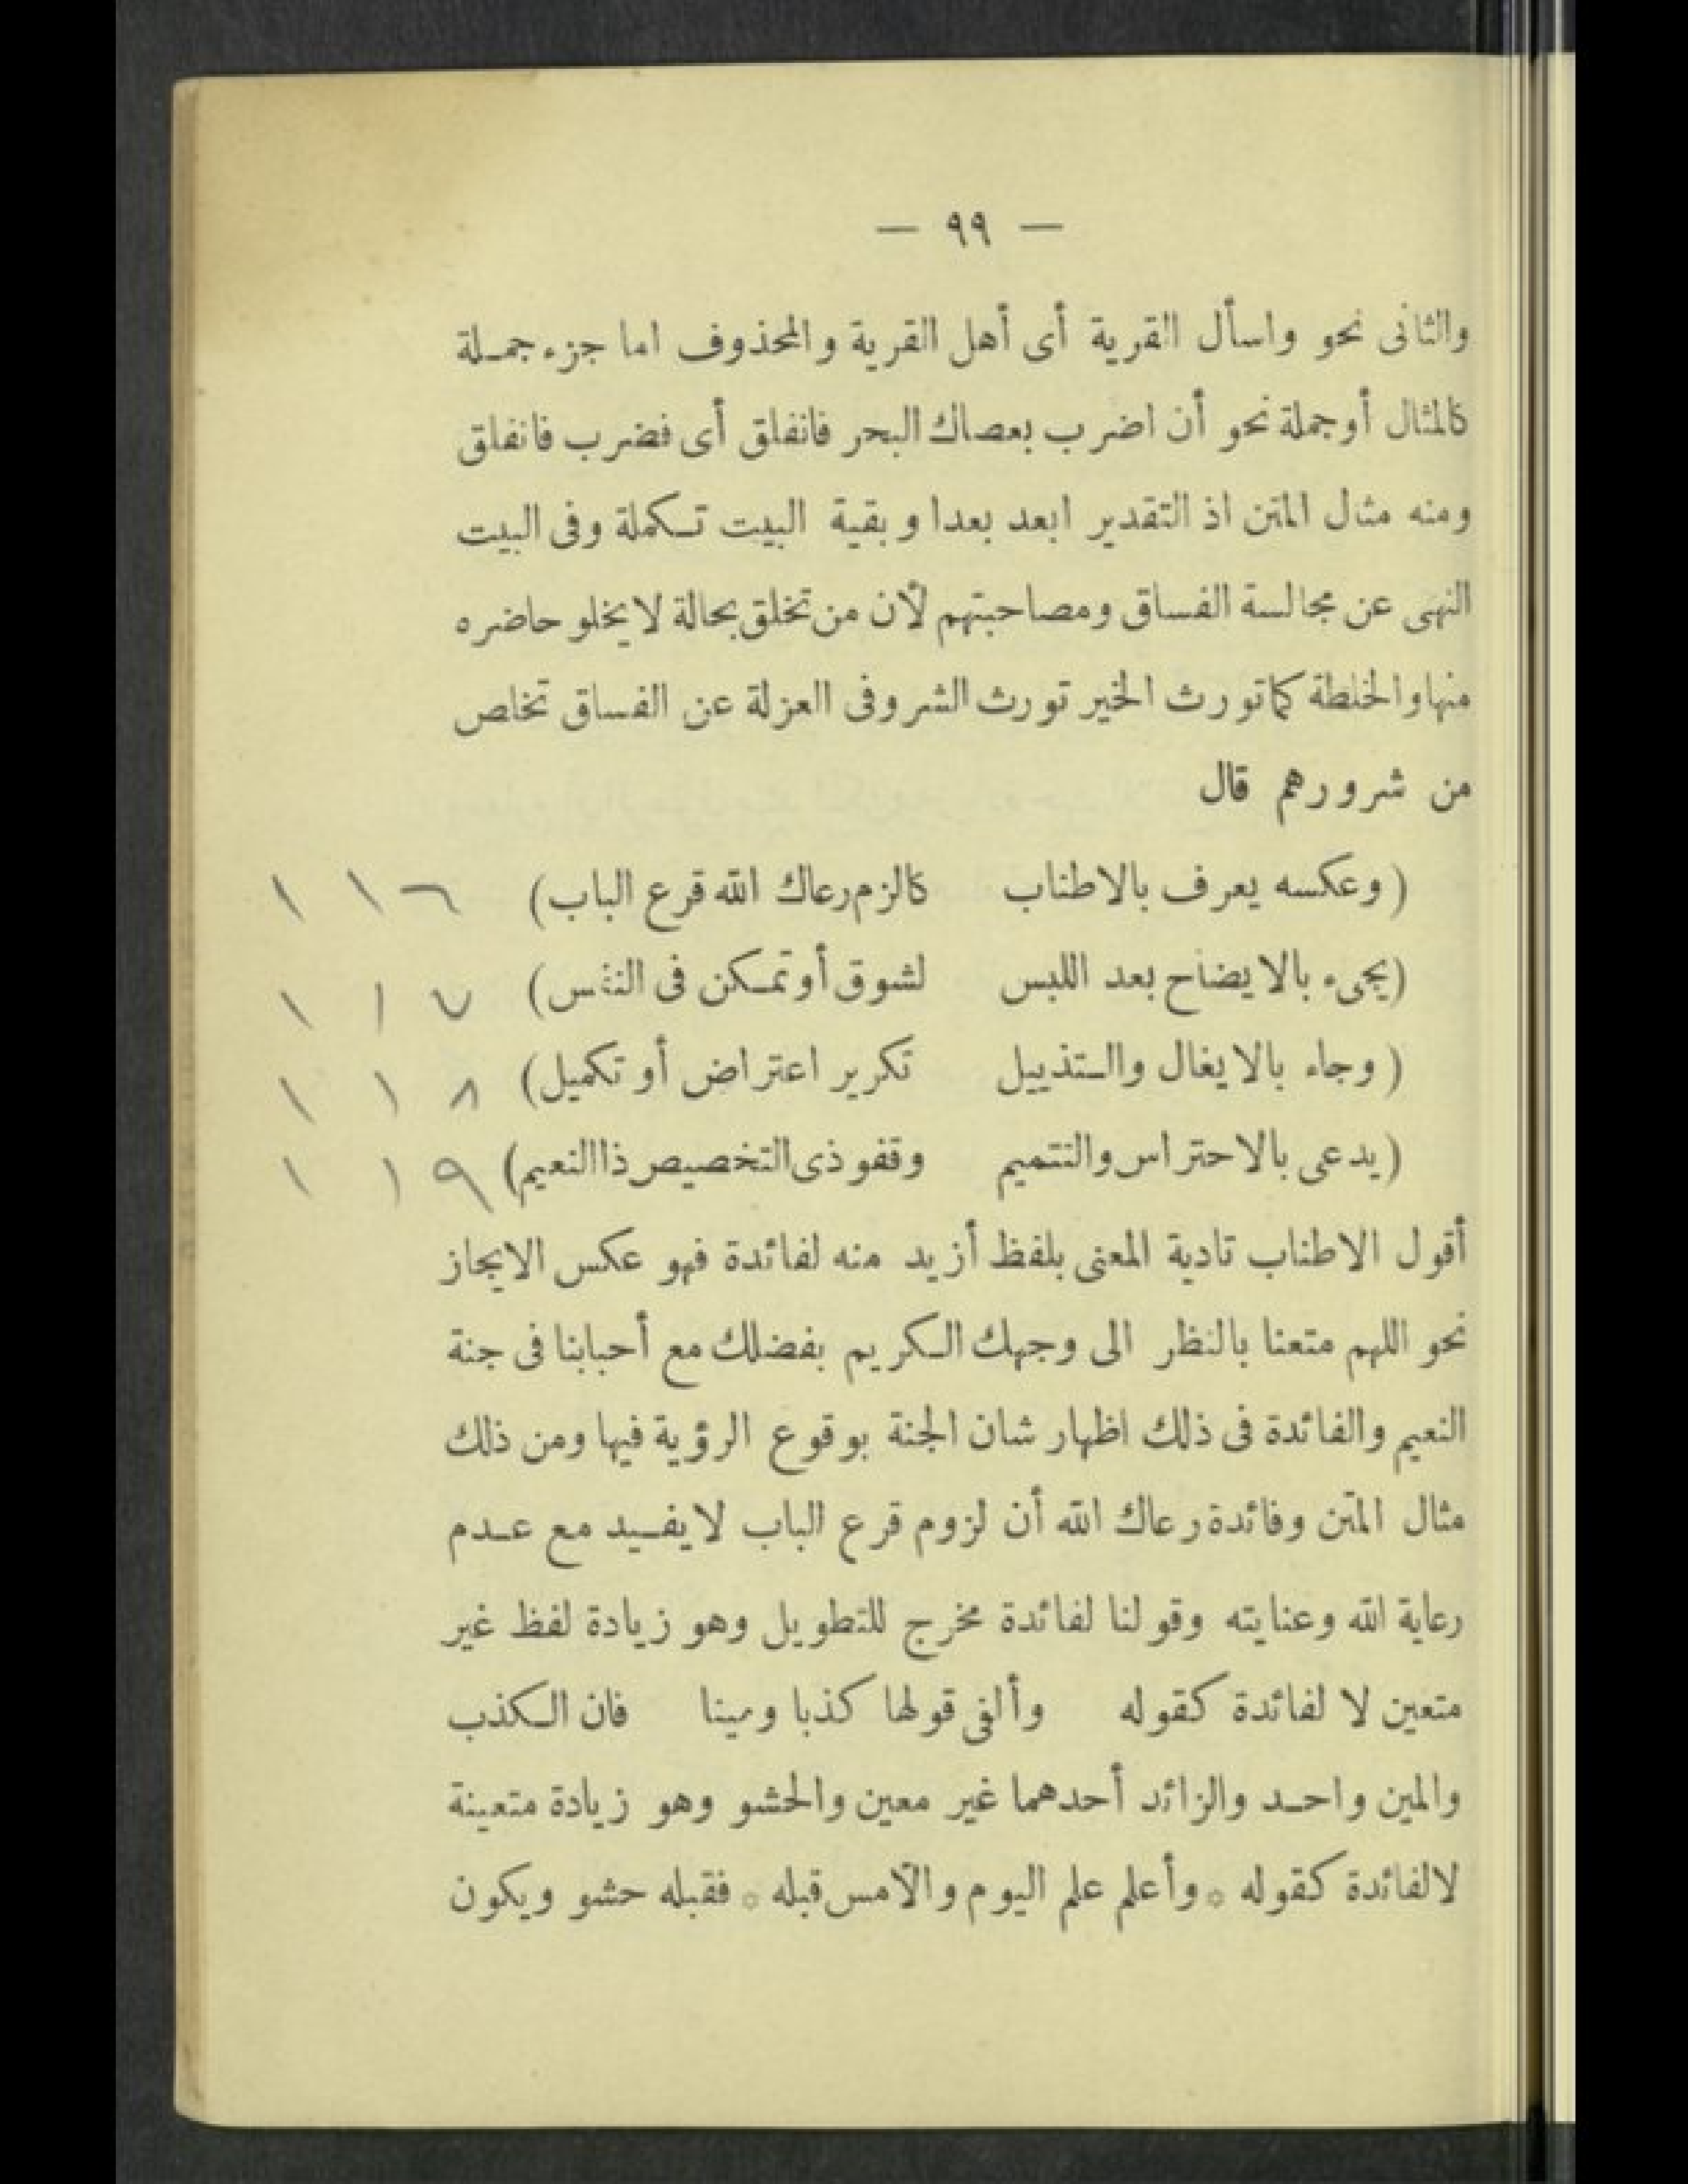 — ٩٩ —
والثانى نحو واسأل القرية أى أهل القرية والمحذوف اما جزء جملة
كالمثال أو جملة نحو أن اضرب بعصاك البحر فانفلق أى فضرب فانفلق
ومنه مثال المتن اذ التقدير ابعد بعدا وبقية البيت تكملة وفى البيت
النهى عن مجالسة الفساق ومصاحبتهم لأن من تخلق بحالة لا يخلو حاضره
منها والخلطة كما تورث الخير تورث الشر وفى العزلة عن الفساق تخلص
من شرورهم قال
(وعكسه يعرف بالاطناب كالزم رعاك الله قرع الباب) ١١٦
(يجىء بالايضاح بعد اللبس لشوق أو تمكن فى النفس) ١١٧
(وجاء بالايغال والتذييل تكرير اعتراض أو تكميل) ١١٨
(يدعى بالاحتراس والتتميم وقفو ذى التخصيص ذا النعيم) ١١٩
أقول الاطناب تادية المعنى بلفظ أزيد منه لفائدة فهو عكس الايجاز
نحو اللهم متعنا بالنظر الى وجهك الكريم بفضلك مع أحبابنا فى جنة
النعيم والفائدة فى ذلك اظهار شان الجنة بوقوع الرؤية فيها ومن ذلك
مثال المتن وفائدة رعاك الله أن لزوم قرع الباب لا يفيد مع عدم
رعاية الله وعنايته وقولنا لفائدة مخرج للتطويل وهو زيادة لفظ غير
متعين لا لفائدة كقوله وألفى قولها كذبا ومينا فان الكذب
والمين واحد والزائد أحدهما غير معين والحشو وهو زيادة متعينة
لا لفائدة كقوله * وأعلم علم اليوم والأمس قبله * فقبله حشو ويكون